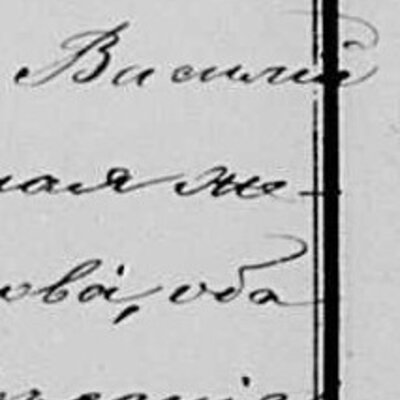 Василий
ная же-
ова, оба